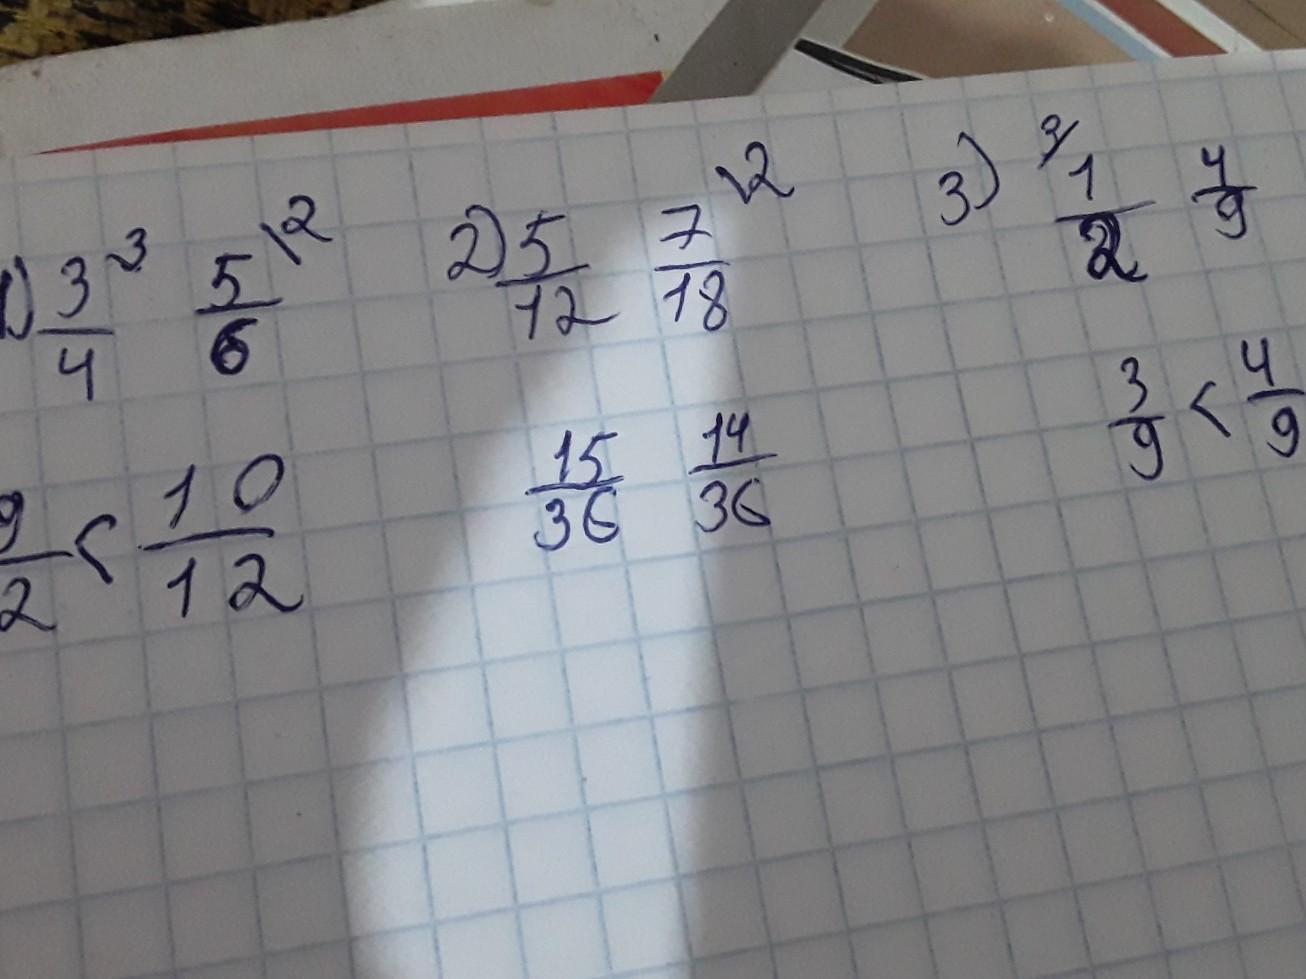 1) 3/4 \3 5/6 \2
9/12 < 10/12
2) 5/12 7/18 \2
15/36 14/36
3) 3/ 1/2 4/9
3/9 < 4/9